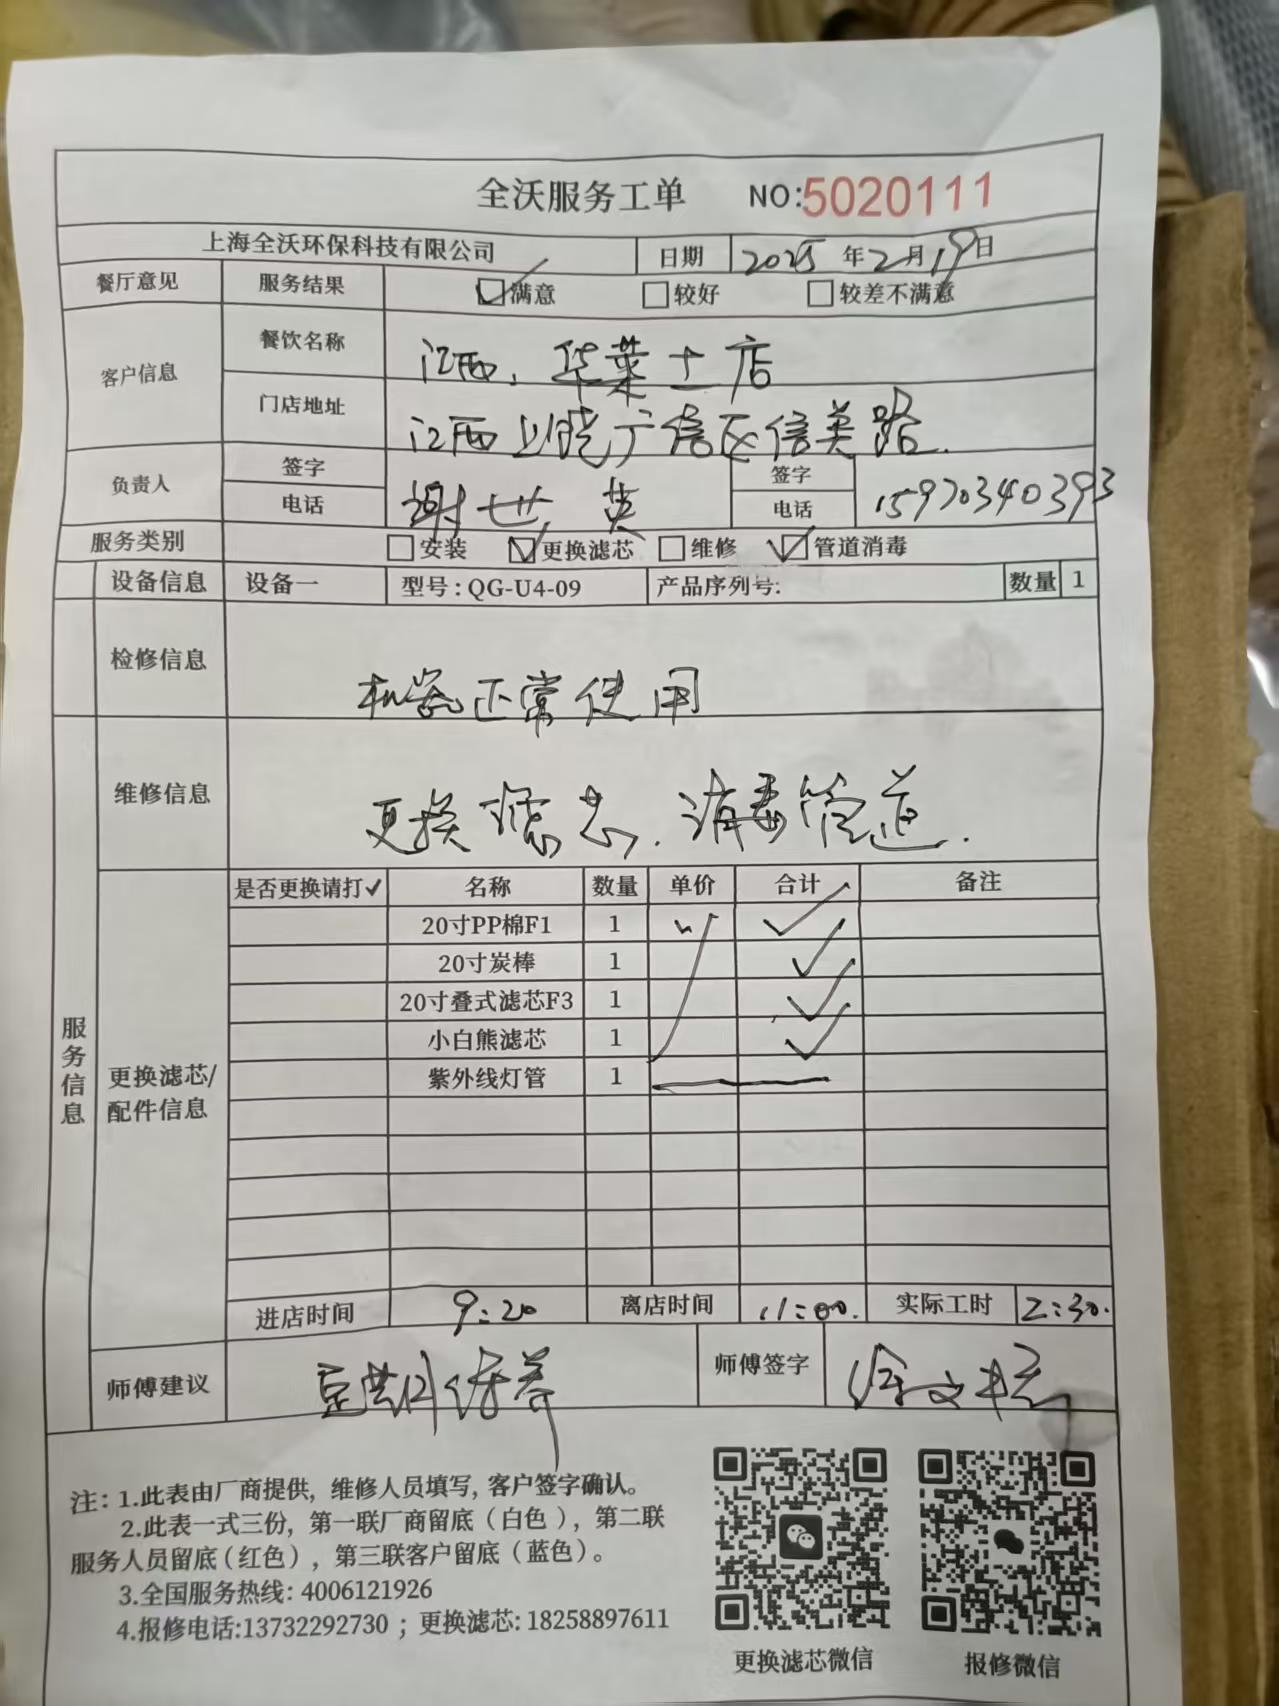 全沃服务工单 NO:5020111
上海全沃环保科技有限公司 日期 2025年2月19日
餐厅意见 服务结果 满意 较好 较差不满意
客户信息 餐饮名称 江西、华莱士店
门店地址 江西上饶广信区信美路.
负责人 签字 谢世英 签字
电话 电话 15970340393
服务类别 安装 更换滤芯 维修 管道消毒
设备信息 设备一 型号:QG-U4-09 产品序列号: 数量 1
检修信息 机器正常使用
服务信息
维修信息 更换滤芯.消毒管道.
更换滤芯/配件信息
是否更换请打✓ 名称 数量 单价 合计 备注
20寸PP棉F1 1 ✓ ✓
20寸炭棒 1 ✓
20寸叠式滤芯F3 1 ✓
小白熊滤芯 1 ✓
紫外线灯管 1 —
进店时间 9:20 离店时间 11:00. 实际工时 2:30.
师傅建议 保养 师傅签字
注：1.此表由厂商提供, 维修人员填写, 客户签字确认。
2.此表一式三份, 第一联厂商留底（白色）, 第二联
服务人员留底（红色）, 第三联客户留底（蓝色）。
3.全国服务热线: 4006121926
4.报修电话:13732292730 ；更换滤芯: 18258897611
更换滤芯微信 报修微信